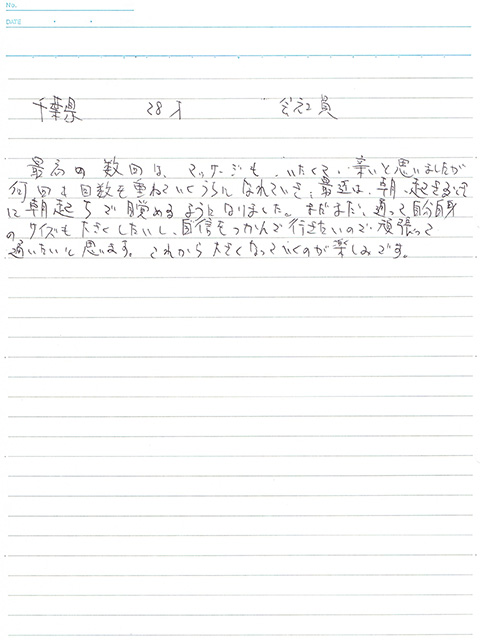 No.
DATE ・ ・
千葉県 28才 会社員
最高の数回は、マッサージも、いたくて、辛いと思いましたが
何回も回数を重ねていくうちになれていき、最近は、朝、起きるとき
に朝起ちで目覚めるようになりました。まだまだ、通って自分自身
のサイズも大きくしたいし、自信をつかんで行きたいので頑張って
通いたいと思います。これから大きくなっていくのが楽しみです。